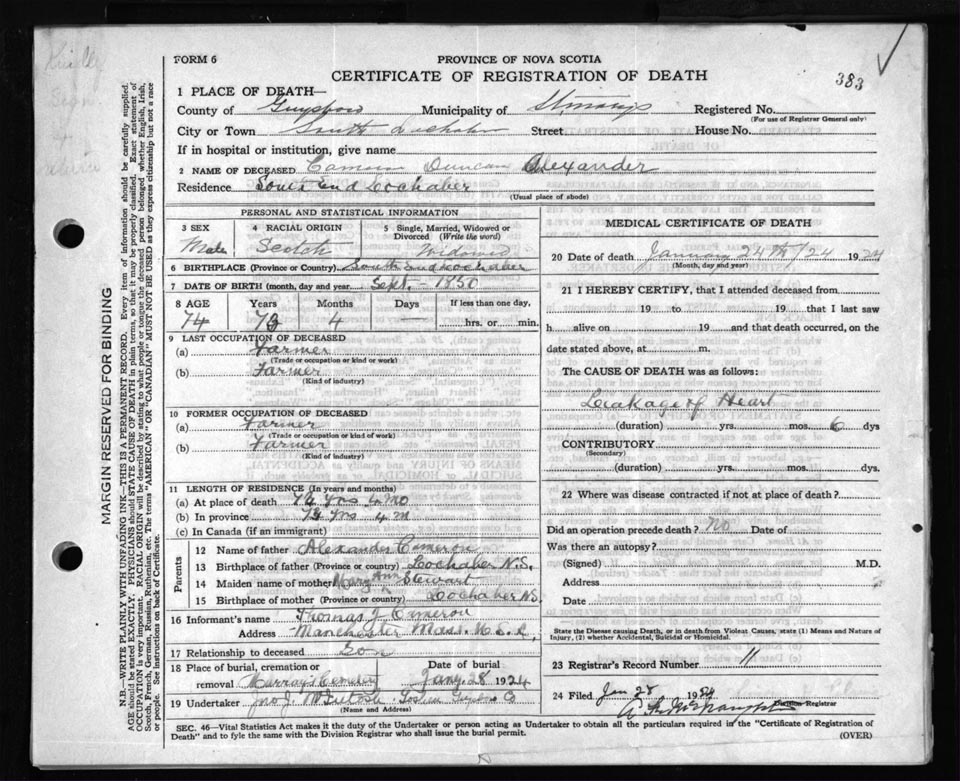 Kindly
Sign
FORM 6
PROVINCE OF NOVA SCOTIA
CERTIFICATE OF REGISTRATION OF DEATH
383
1 PLACE OF DEATH—
County of Guysboro Municipality of St Marys Registered No.
(For use of Registrar General only)
City or Town South Lochaber Street House No.
If in hospital or institution, give name
2 NAME OF DECEASED Cameron Duncan Alexander
Residence South End Lochaber
(Usual place of abode)
PERSONAL AND STATISTICAL INFORMATION
3 SEX 4 RACIAL ORIGIN 5 Single, Married, Widowed or Divorced (Write the word)
Male Scotch Widowed
6 BIRTHPLACE (Province or Country) South End Lochaber
7 DATE OF BIRTH (month, day and year Sept. - 1850
8 AGE Years Months Days If less than one day,
74 73 4 — hrs. or min.
9 LAST OCCUPATION OF DECEASED
(a) Farmer
(Trade or occupation or kind or work)
(b) Farmer
(Kind of industry)
10 FORMER OCCUPATION OF DECEASED
(a) Farmer
(Trade or occupation or kind of work)
(b) Farmer
(Kind of industry)
11 LENGTH OF RESIDENCE (In years and months)
(a) At place of death yrs 4 mo
(b) In province 73 yrs 4 m
(c) In Canada (if an immigrant)
Parents
12 Name of father Alexander Cameron
13 Birthplace of father (Province or country) Lochaber N.S.
14 Maiden name of mother Mary Ann Stewart
15 Birthplace of mother (Province or country) Lochaber NS
16 Informant's name Thomas J Cameron
Address Manchester Mass. U.S.A.
17 Relationship to deceased Son
18 Place of burial, cremation or removal Murray Cemetery Date of burial Jany. 28 1924
19 Undertaker Jno J. McIntosh
(Name and Address)
MEDICAL CERTIFICATE OF DEATH
20 Date of death January 24th/24 1924
(Month, day and year)
21 I HEREBY CERTIFY, that I attended deceased from
19 to 19 that I last saw
h alive on 19 and that death occurred, on the
date stated above, at m.
The CAUSE OF DEATH was as follows:
Leakage of Heart
(duration) yrs. mos. 6 dys
CONTRIBUTORY
(Secondary)
(duration) yrs. mos. dys.
22 Where was disease contracted if not at place of death?
Did an operation precede death? No Date of
Was there an autopsy?
(Signed) M.D.
Address
Date
State the Disease causing Death, or in death from Violent Causes, state (1) Means and Nature of
Injury, (2) whether Accidental, Suicidal or Homicidal.
23 Registrar's Record Number 11
24 Filed Jan 28 1924
Division Registrar
SEC. 46—Vital Statistics Act makes it the duty of the Undertaker or person acting as Undertaker to obtain all the particulars required of the "Certificate of Registration of
Death" and to fyle the same with the Division Registrar who shall issue the burial permit. (OVER)
MARGIN RESERVED FOR BINDING
N.B.—WRITE PLAINLY WITH UNFADING INK—THIS IS A PERMANENT RECORD. Every item of information should be carefully supplied.
AGE should be stated EXACTLY. PHYSICIANS should STATE CAUSE OF DEATH in plain terms, so that it may be properly classified. Exact statement of
OCCUPATION is very important. RACIAL ORIGIN will be described by stating to what people or tongue the deceased person belonged, whether English, Irish,
Scotch, French, German, Russian, Ruthenian, etc. The terms "AMERICAN" OR "CANADIAN" MUST NOT BE USED as they express citizenship but not a race
or people. See instructions on back of Certificate.